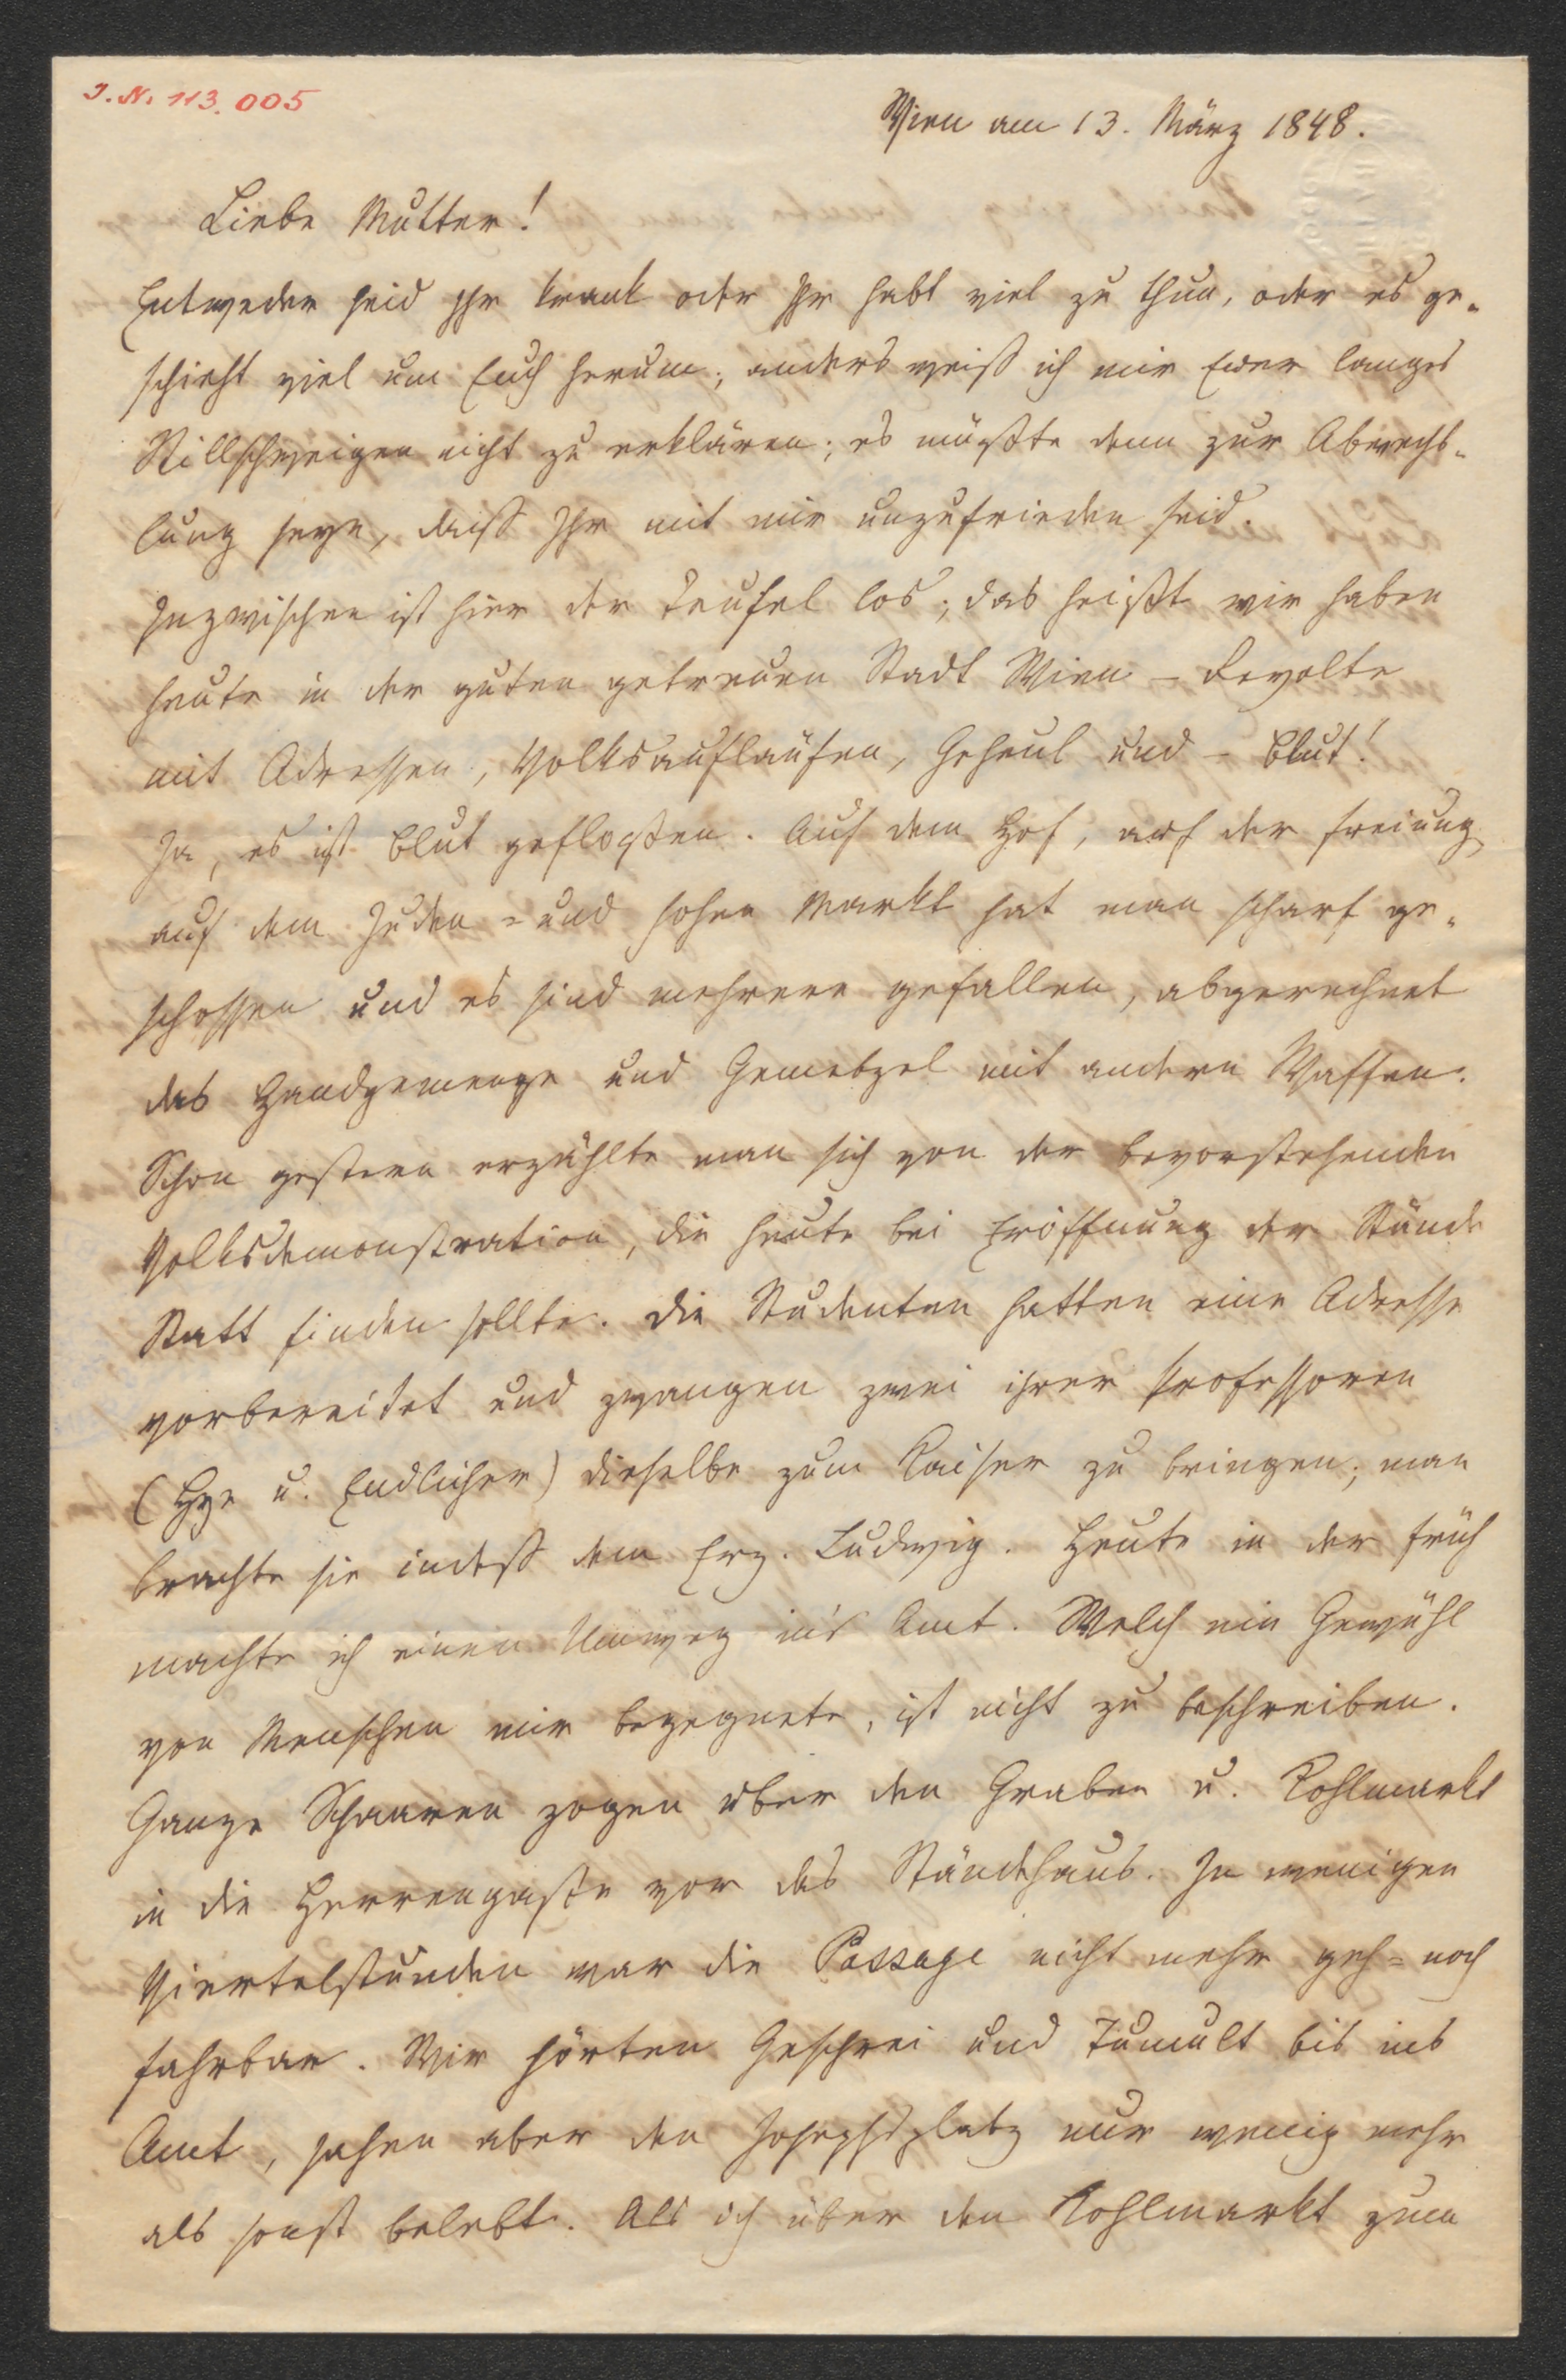 J. N. 113.005
Wien am 13. März 1848.
Liebe Mutter!
Entweder seid Ihr krank oder Ihr habt viel zu thun, oder es ge-
schieht viel um Euch herum; anders weiß ich mir Euer langes
Stillschweigen nicht zu erklären; es müßte denn zur Abwechs-
lung seyn, daß Ihr mit mir unzufrieden seid.
Inzwischen ist hier der Teufel los; das heißt wir haben
heute in der guten getreuen Stadt Wien – Revolte
mit Adressen, Volksaufläufen, Geheul und – Blut!
Ja, es ist Blut gefloßen. Auf dem Hof, auf der Freiung,
auf dem Juden- und hohen Markt hat man scharf ge-
schossen und es sind mehrere gefallen, abgerechnet
das Handgemenge und Gemetzel mit andern Waffen.
Schon gestern erzählte man sich von der bevorstehenden
Volksdemonstration, die heute bei Eröffnung der Stände
Statt finden sollte. Die Studenten hatten eine Adresse
vorbereitet und zwangen zwei ihrer Professoren
(Hye u. Endlicher) dieselbe zum Kaiser zu bringen; man
brachte sie indeß dem Erz. Ludwig. Heute in der Früh
machte ich einen Umweg in's Amt. Welch ein Gewühl
von Menschen mir begegnete, ist nicht zu beschreiben.
Ganze Schaaren zogen über den Graben u. Kohlmarkt
in die Herrengaße vor das Ständehaus. In wenigen
Viertelstunden war die Passage nicht mehr geh- noch
fahrbar. Wir hörten Geschrei und Tumult bis ins
Amt, sahen aber den Josephsplatz nur wenig mehr
als sonst belebt. Als ich über den Kohlmarkt zum